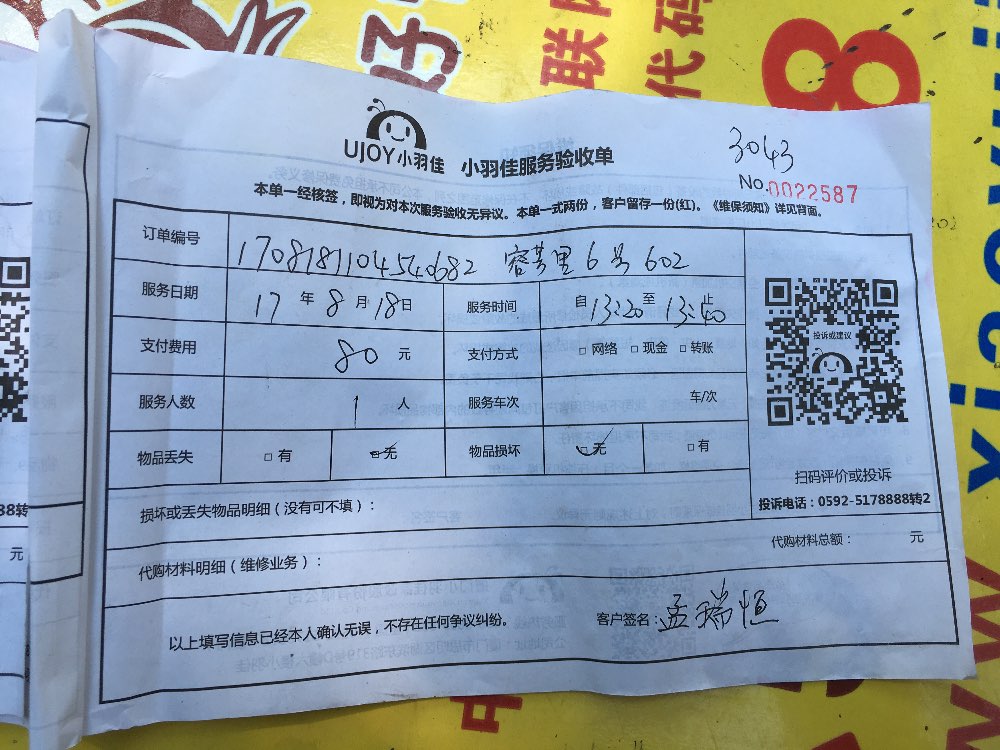 联网
代码
8
3043
UJOY小羽佳 小羽佳服务验收单
No.0022587
本单一经核签，即视为对本次服务验收无异议。本单一式两份，客户留存一份(红)。《维保须知》详见背面。
订单编号 1708181104540682 6号602
服务日期 17年8月18日 服务时间 自13:20至13:40止
支付费用 80元 支付方式 □网络 □现金 □转账
服务人数 1人 服务车次 车/次
物品丢失 □有 □无 物品损坏 □无 □有
投诉或建议
扫码评价或投诉
投诉电话：0592-5178888转2
损坏或丢失物品明细（没有可不填）：
代购材料明细（维修业务）： 代购材料总额： 元
以上填写信息已经本人确认无误，不存在任何争议纠纷。 客户签名：孟瑞恒
88转
元